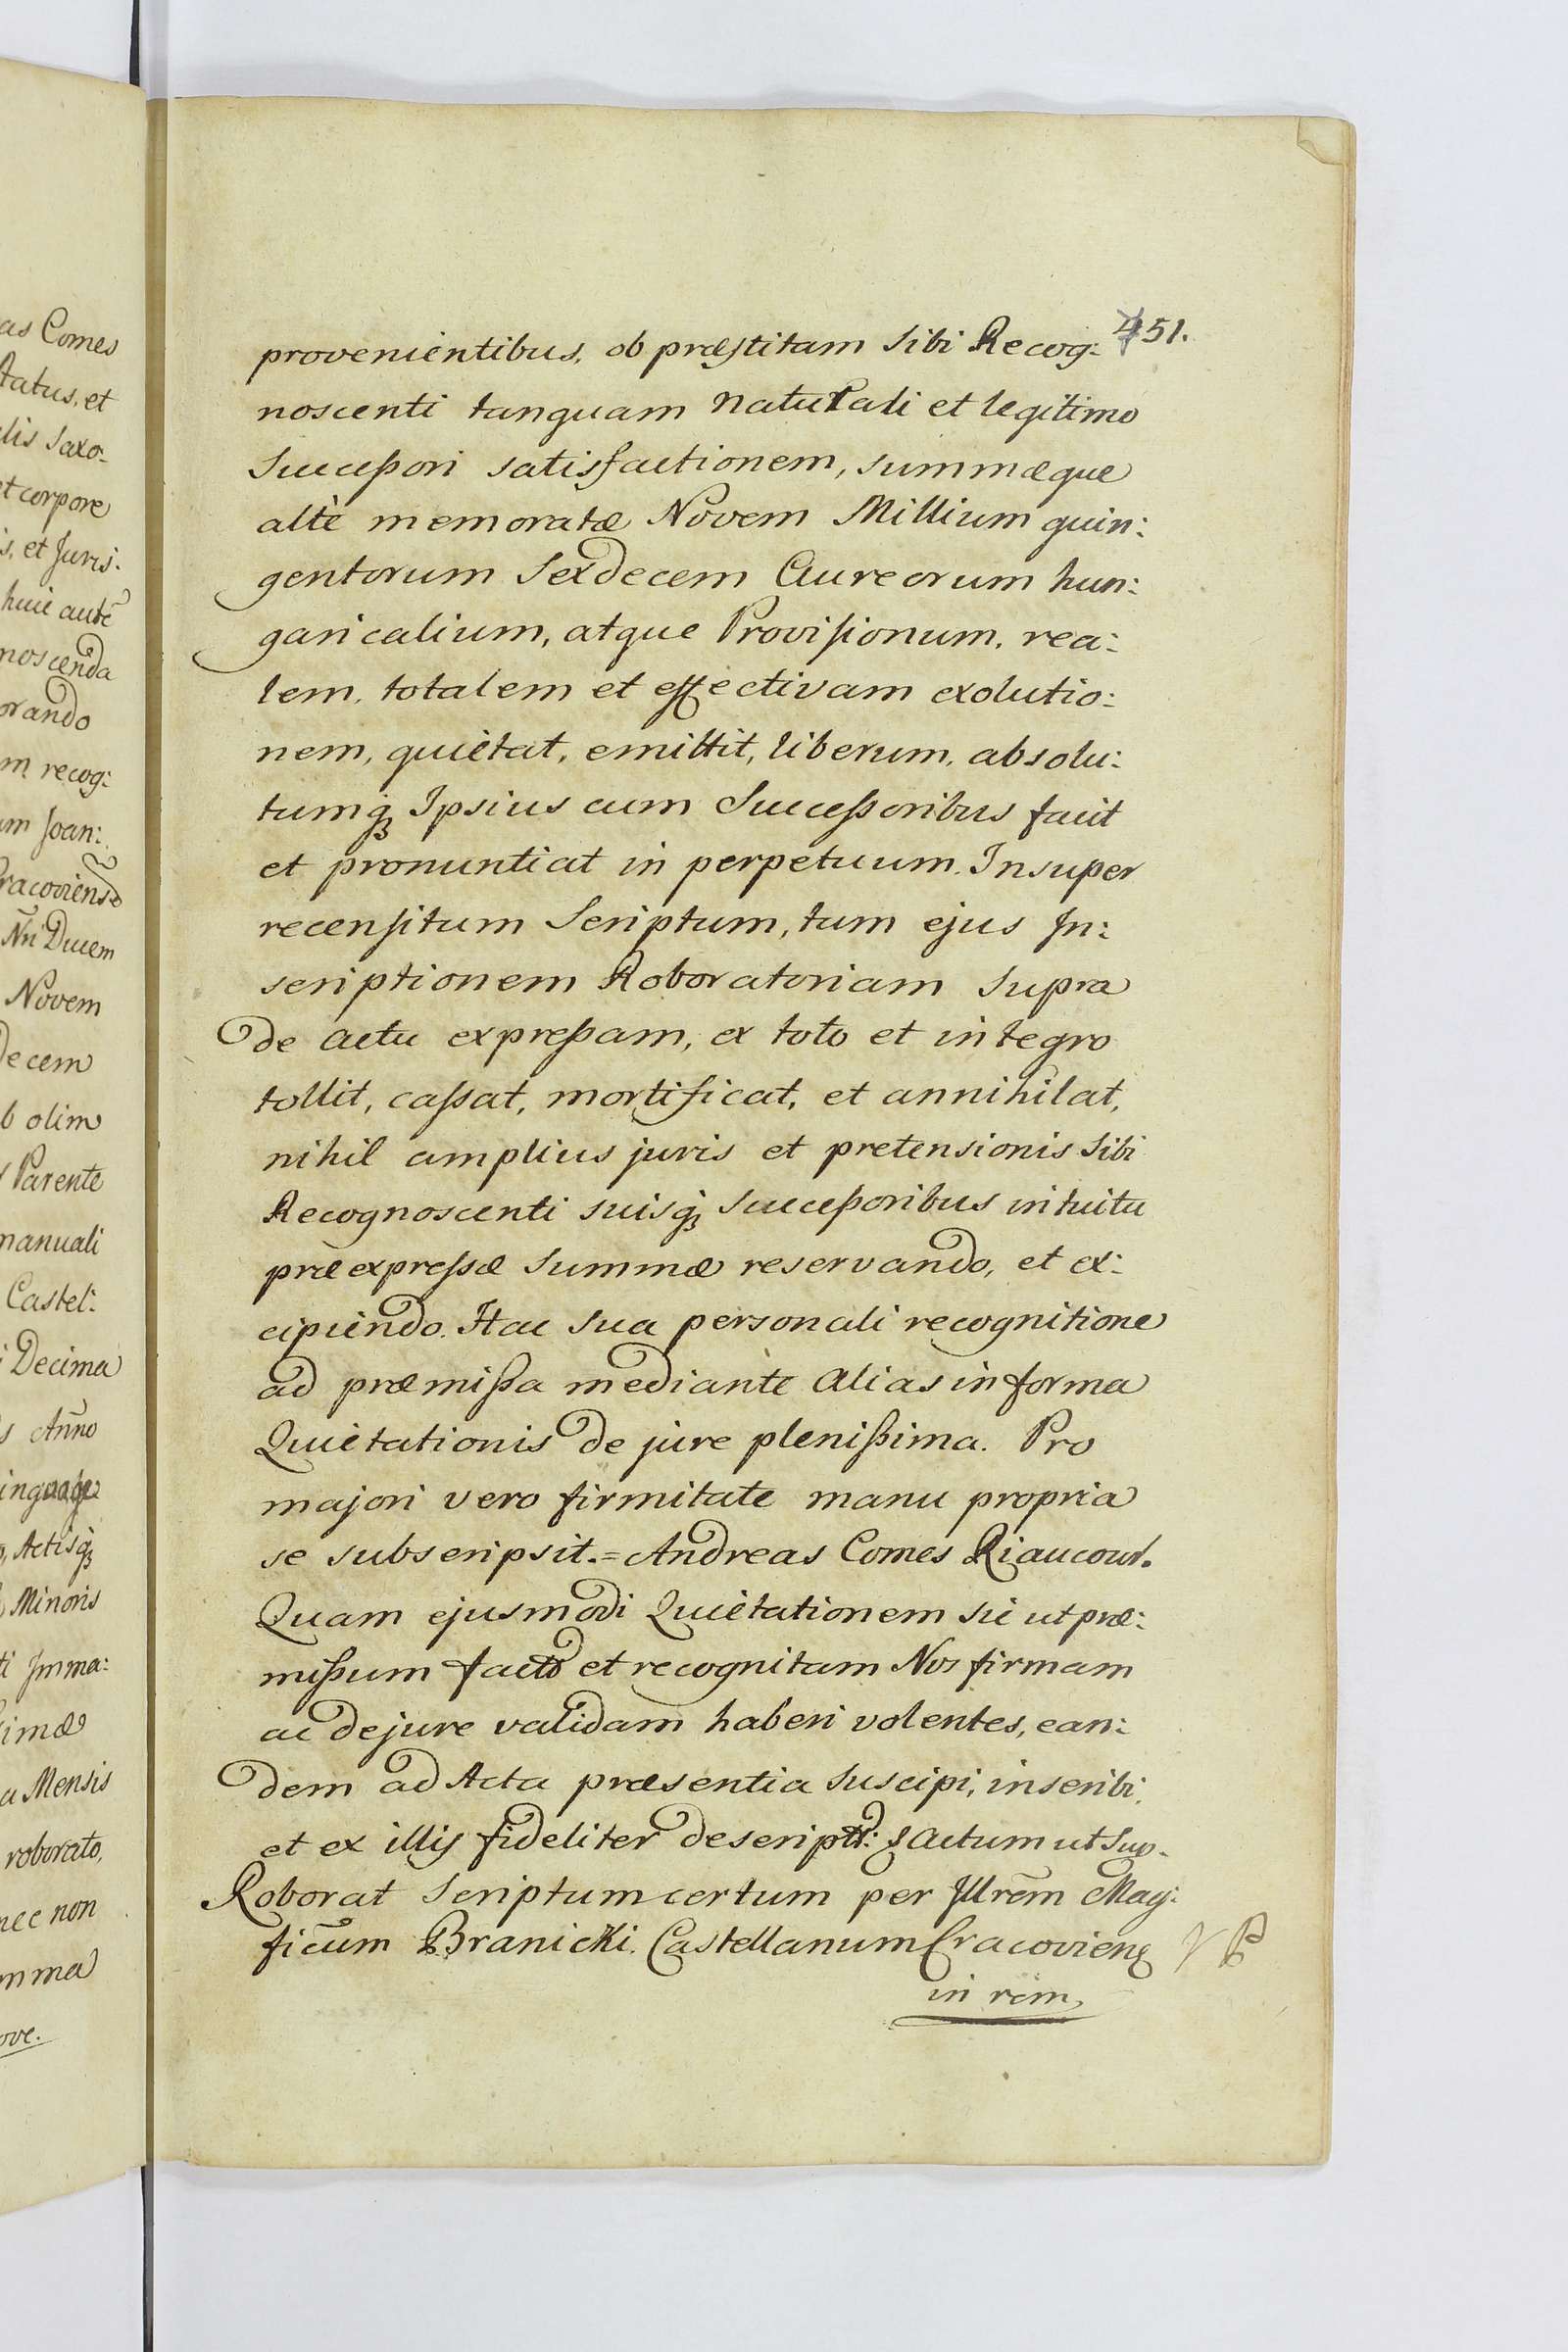 as Comes
tatus, et
lis Saxo-
et corpore
s, et Juris:
huic autē
noscenda
orando
m recog:
um Joan:
racoviens
Nri Ducem
Novem
Decem
b olim
Parente
manuali
Castel:
i Decima
s Anno
, Actisq₃
Minoris
ti Imma:
simæ
a Mensis
roborato,
nec non
mma
ove.
451.
provenientibus, ob præstitam sibi Recog:
noscenti tanquam naturali et legitimo
Successori satisfactionem, summæque
altè memoratæ Novem Millium quin:
gentorum Sexdecem Aureorum hun:
garicalium, atque Provisionum, rea:
lem, totalem et effectivam exolutio:
nem, quietat, emittit, liberum, absolu:
tumq₃ Ipsius cum Successoribus facit
et pronuntiat in perpetuum. Insuper
recensitum Scriptum, tum ejus In:
scriptionem Roboratoriam supra
de actu expressam, ex toto et integro
tollit, cassat, mortificat, et annihilat,
nihil amplius juris et pretensionis sibi
Recognoscenti suisq₃ successoribus intuitu
præexpressæ summæ reservando, et ex:
cipiendo. Hac sua personali recognitione
ad præmissa mediante alias in forma
Quietationis de jure plenissima. Pro
majori vero firmitate manu propria
se subscripsit.= Andreas Comes Riaucour.
Quam ejusmodi Quietationem sic ut præ:
missum facto et recognitam Nos firmam
ac dejure validam haberi volentes, ean:
dem ad Acta præsentia suscipi, inscribi,
et ex illis fideliter descript: Actum ut Sup.
Roborat Scriptum certum per Illrēm Mag:
ficūm Branicki Castellanum Cracovien
in rem